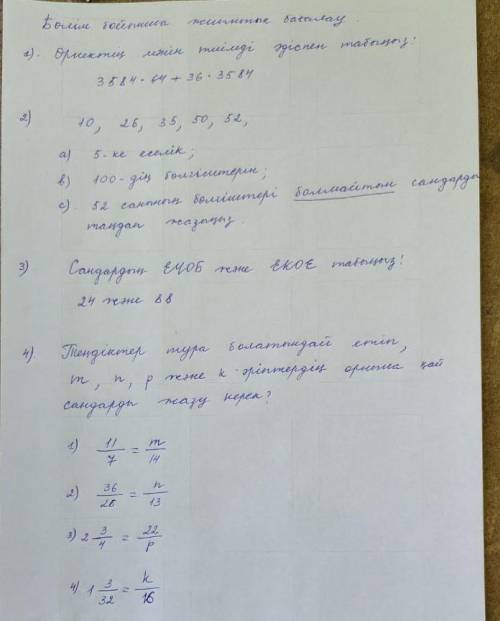 Бөлім бойынша жиынтық бағалау
1). Өрнектің мәнін тиімді әдіспен табыңыз:
3584 · 64 + 36 · 3584
2) 10, 26, 35, 50, 52,
a) 5-ке еселік;
b) 100-дің бөлгіштерін;
c). 52 санының бөлгіштері болмайтын сандарды
таңдап жазыңыз.
3) Сандардың ЕҮОБ және ЕКОЕ табыңыз:
24 және 88
4). Теңдіктер тура болатындай етіп,
m, n, p және k әріптердің орнына қай
сандарды жазу керек?
1) 11/7 = m/14
2) 36/26 = n/13
3) 2 3/4 = 22/p
4) 1 3/32 = k/16